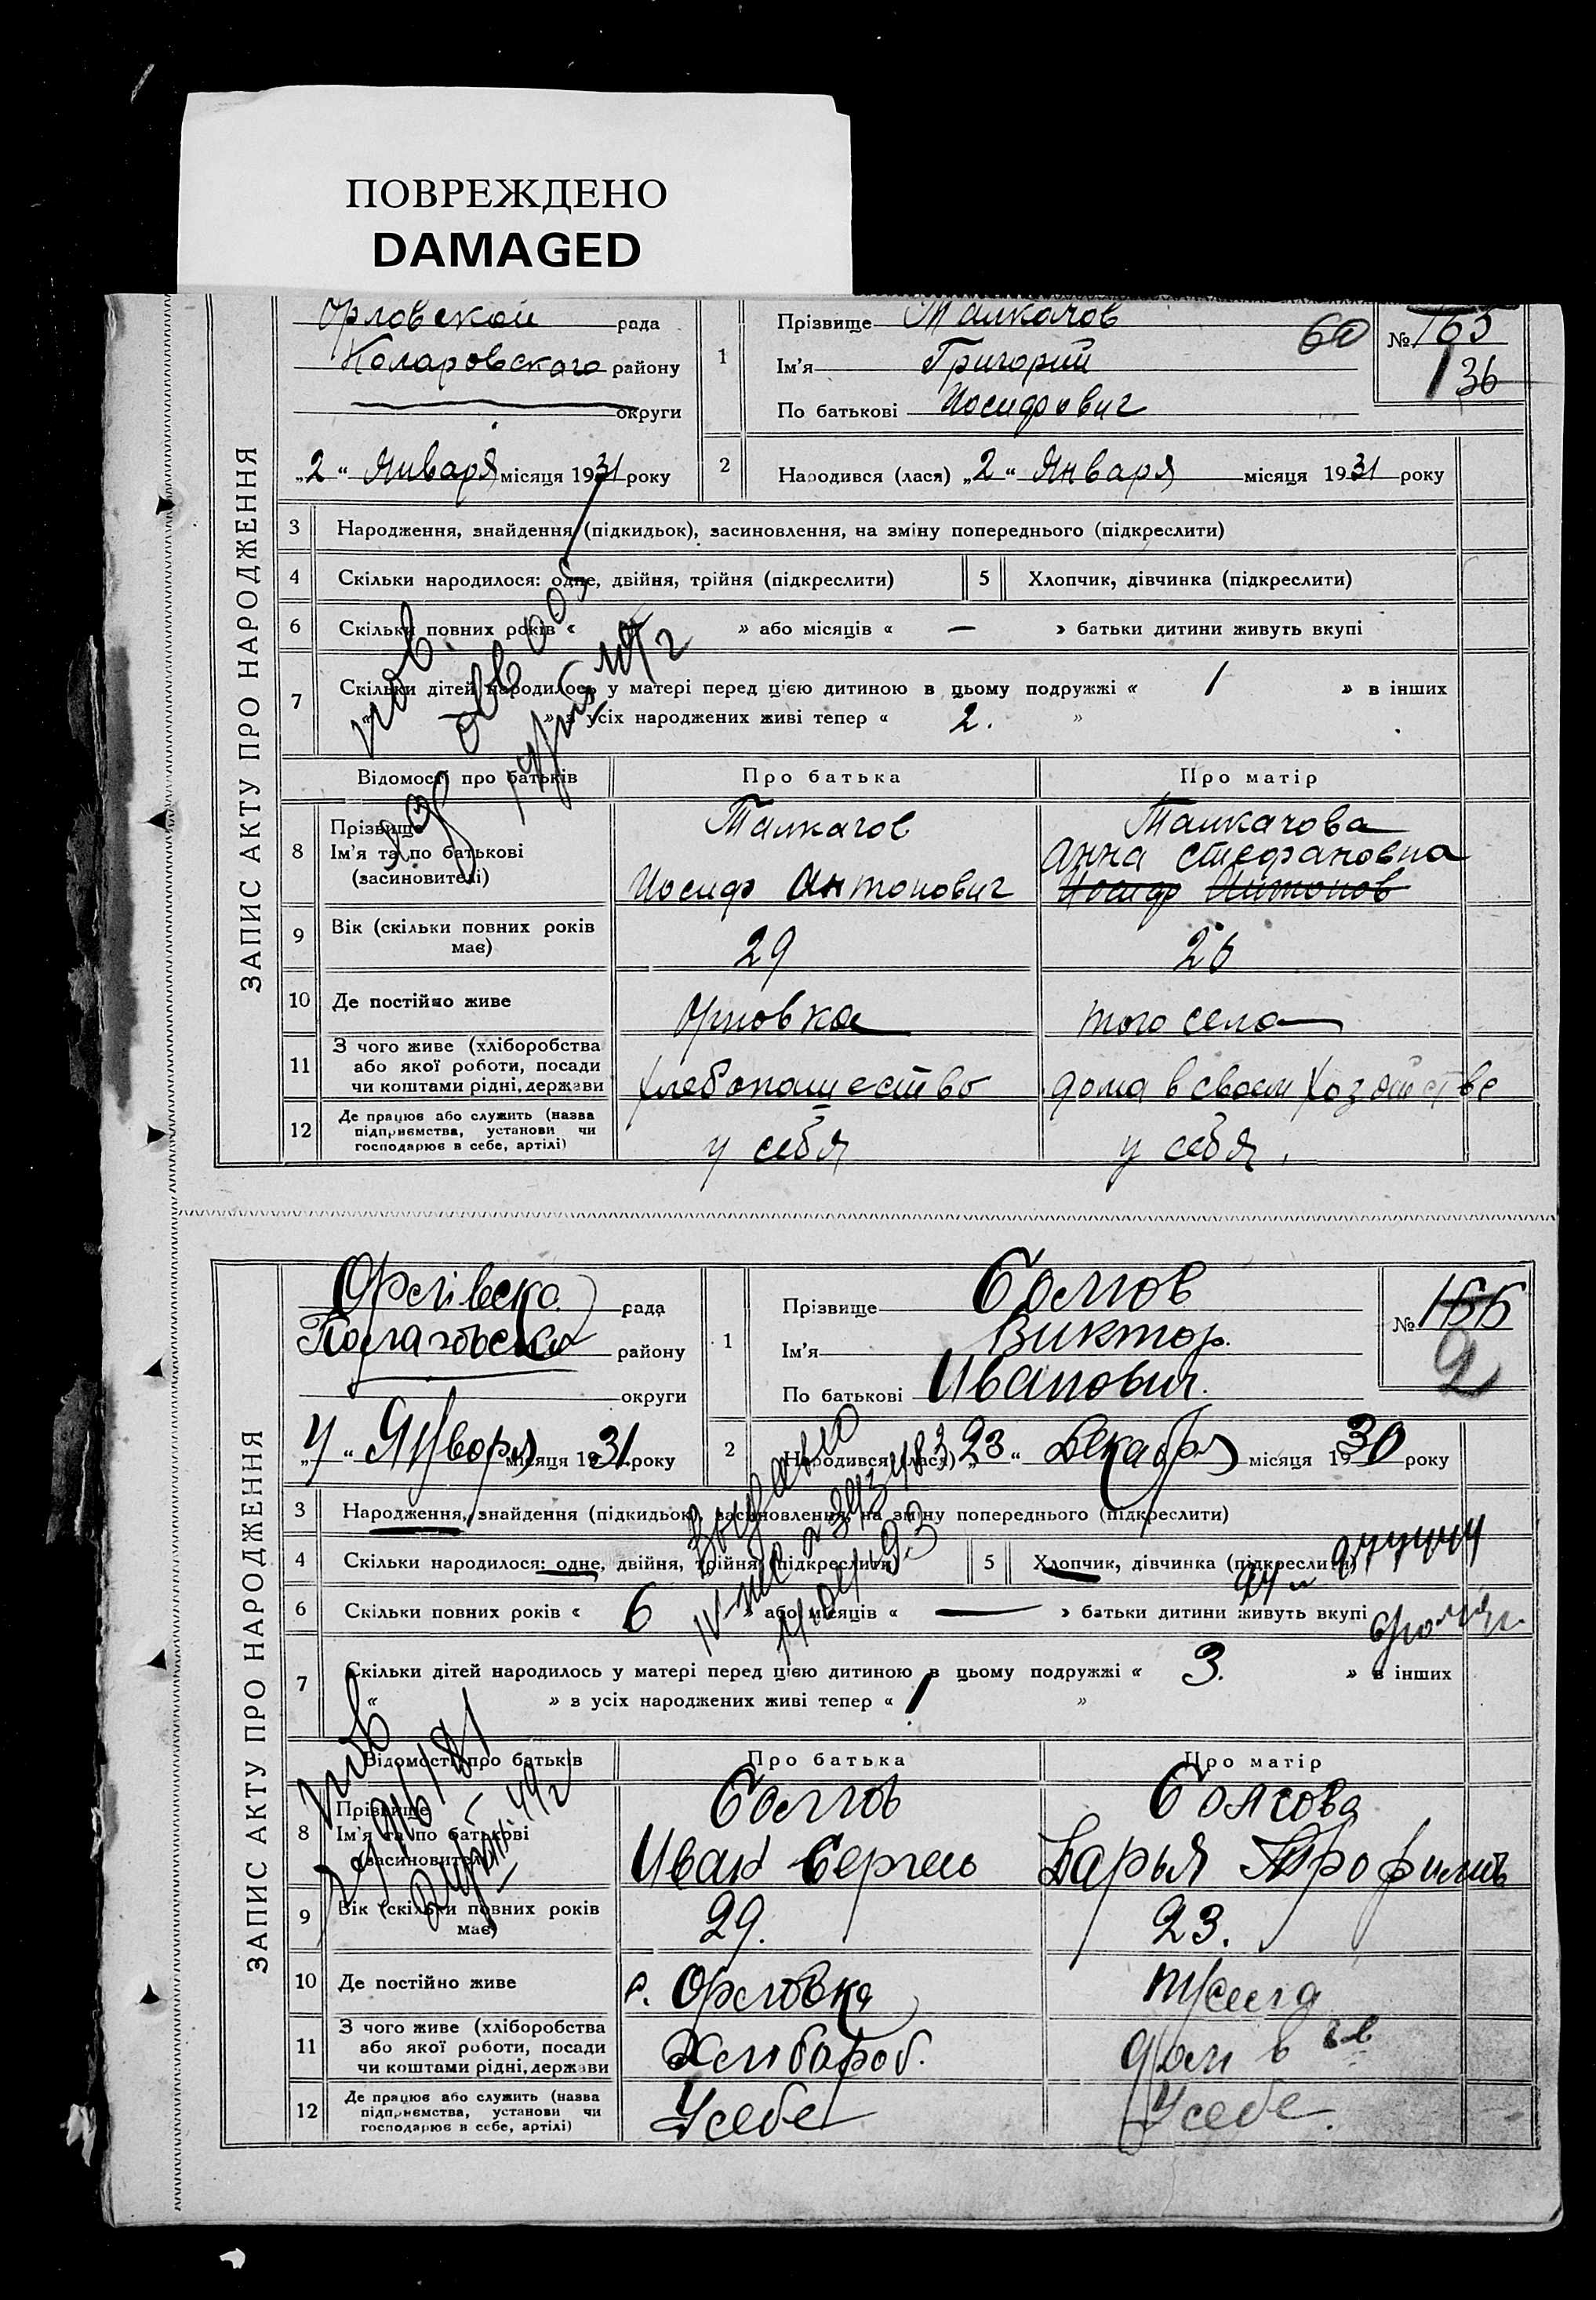 ПОВРЕЖДЕНО
DAMAGED
ЗАПИС АКТУ ПРО НАРОДЖЕННЯ
Орловской рада
Коларовского району
округи
„2“ Января місяця 1931 року
1 Прізвище Талкачов
Ім'я Григорий
По батькові Иосифович
60
№ 165
36
2 Народився (лася) „2“ Января місяця 1931 року
3 Народження, знайдення (підкидьок), засиновлення, на зміну попереднього (підкреслити)
4 Скільки народилося: одне, двійня, трійня (підкреслити)
5 Хлопчик, дівчинка (підкреслити)
6 Скільки повних років « » або місяців « — » батьки дитини живуть вкупі
7 Скільки дітей народилось у матері перед цією дитиною в цьому подружжі « 1 » в інших
« » з усіх народжених живі тепер « 2. »
Відомості про батьків Про батька Про матір
8 Прізвище
Ім'я та по батькові
(засиновителі)
Талкачов
Иосиф Антонович
Талкачова
Анна Стефановна
Иосиф Антонов
9 Вік (скільки повних років має) 29 26
10 Де постійно живе Орловка того села
11 З чого живе (хліборобства
або якої роботи, посади
чи коштами рідні, держави
хлебопашество дома в своем хозяйстве
12 Де працює або служить (назва
підприємства, установи чи
господарює в себе, артілі)
у себя у себя.
ЗАПИС АКТУ ПРО НАРОДЖЕННЯ
Орлівска рада
району
округи
„4“ Января місяця 1931 року
1 Прізвище Болгов
Ім'я Виктор.
По батькові Иванович.
№ 166
2
2 Народився (лася) „23“ Декабря місяця 1930 року
3 Народження, знайдення (підкидьок), засиновлення, на зміну попереднього (підкреслити)
4 Скільки народилося: одне, двійня, трійня (підкреслити)
5 Хлопчик, дівчинка (підкреслити)
6 Скільки повних років « 6 » або місяців « — » батьки дитини живуть вкупі
7 Скільки дітей народилось у матері перед цією дитиною в цьому подружжі « 3. » в інших
« » з усіх народжених живі тепер « 1 »
Відомості про батьків Про батька Про матір
8 Прізвище
Ім'я та по батькові
(засиновителі)
Болгов
Иван Сергеев
Болгова
Дарья
9 Вік (скільки повних років має) 29. 23.
10 Де постійно живе с. Орловка
11 З чого живе (хліборобства
або якої роботи, посади
чи коштами рідні, держави
Хлібороб.
12 Де працює або служить (назва
підприємства, установи чи
господарює в себе, артілі)
У себе У себе.